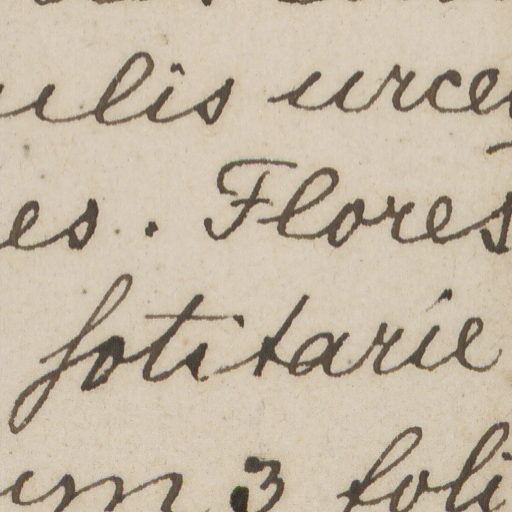 ulis urce
es. Flores
sotitarie
um 3 foli